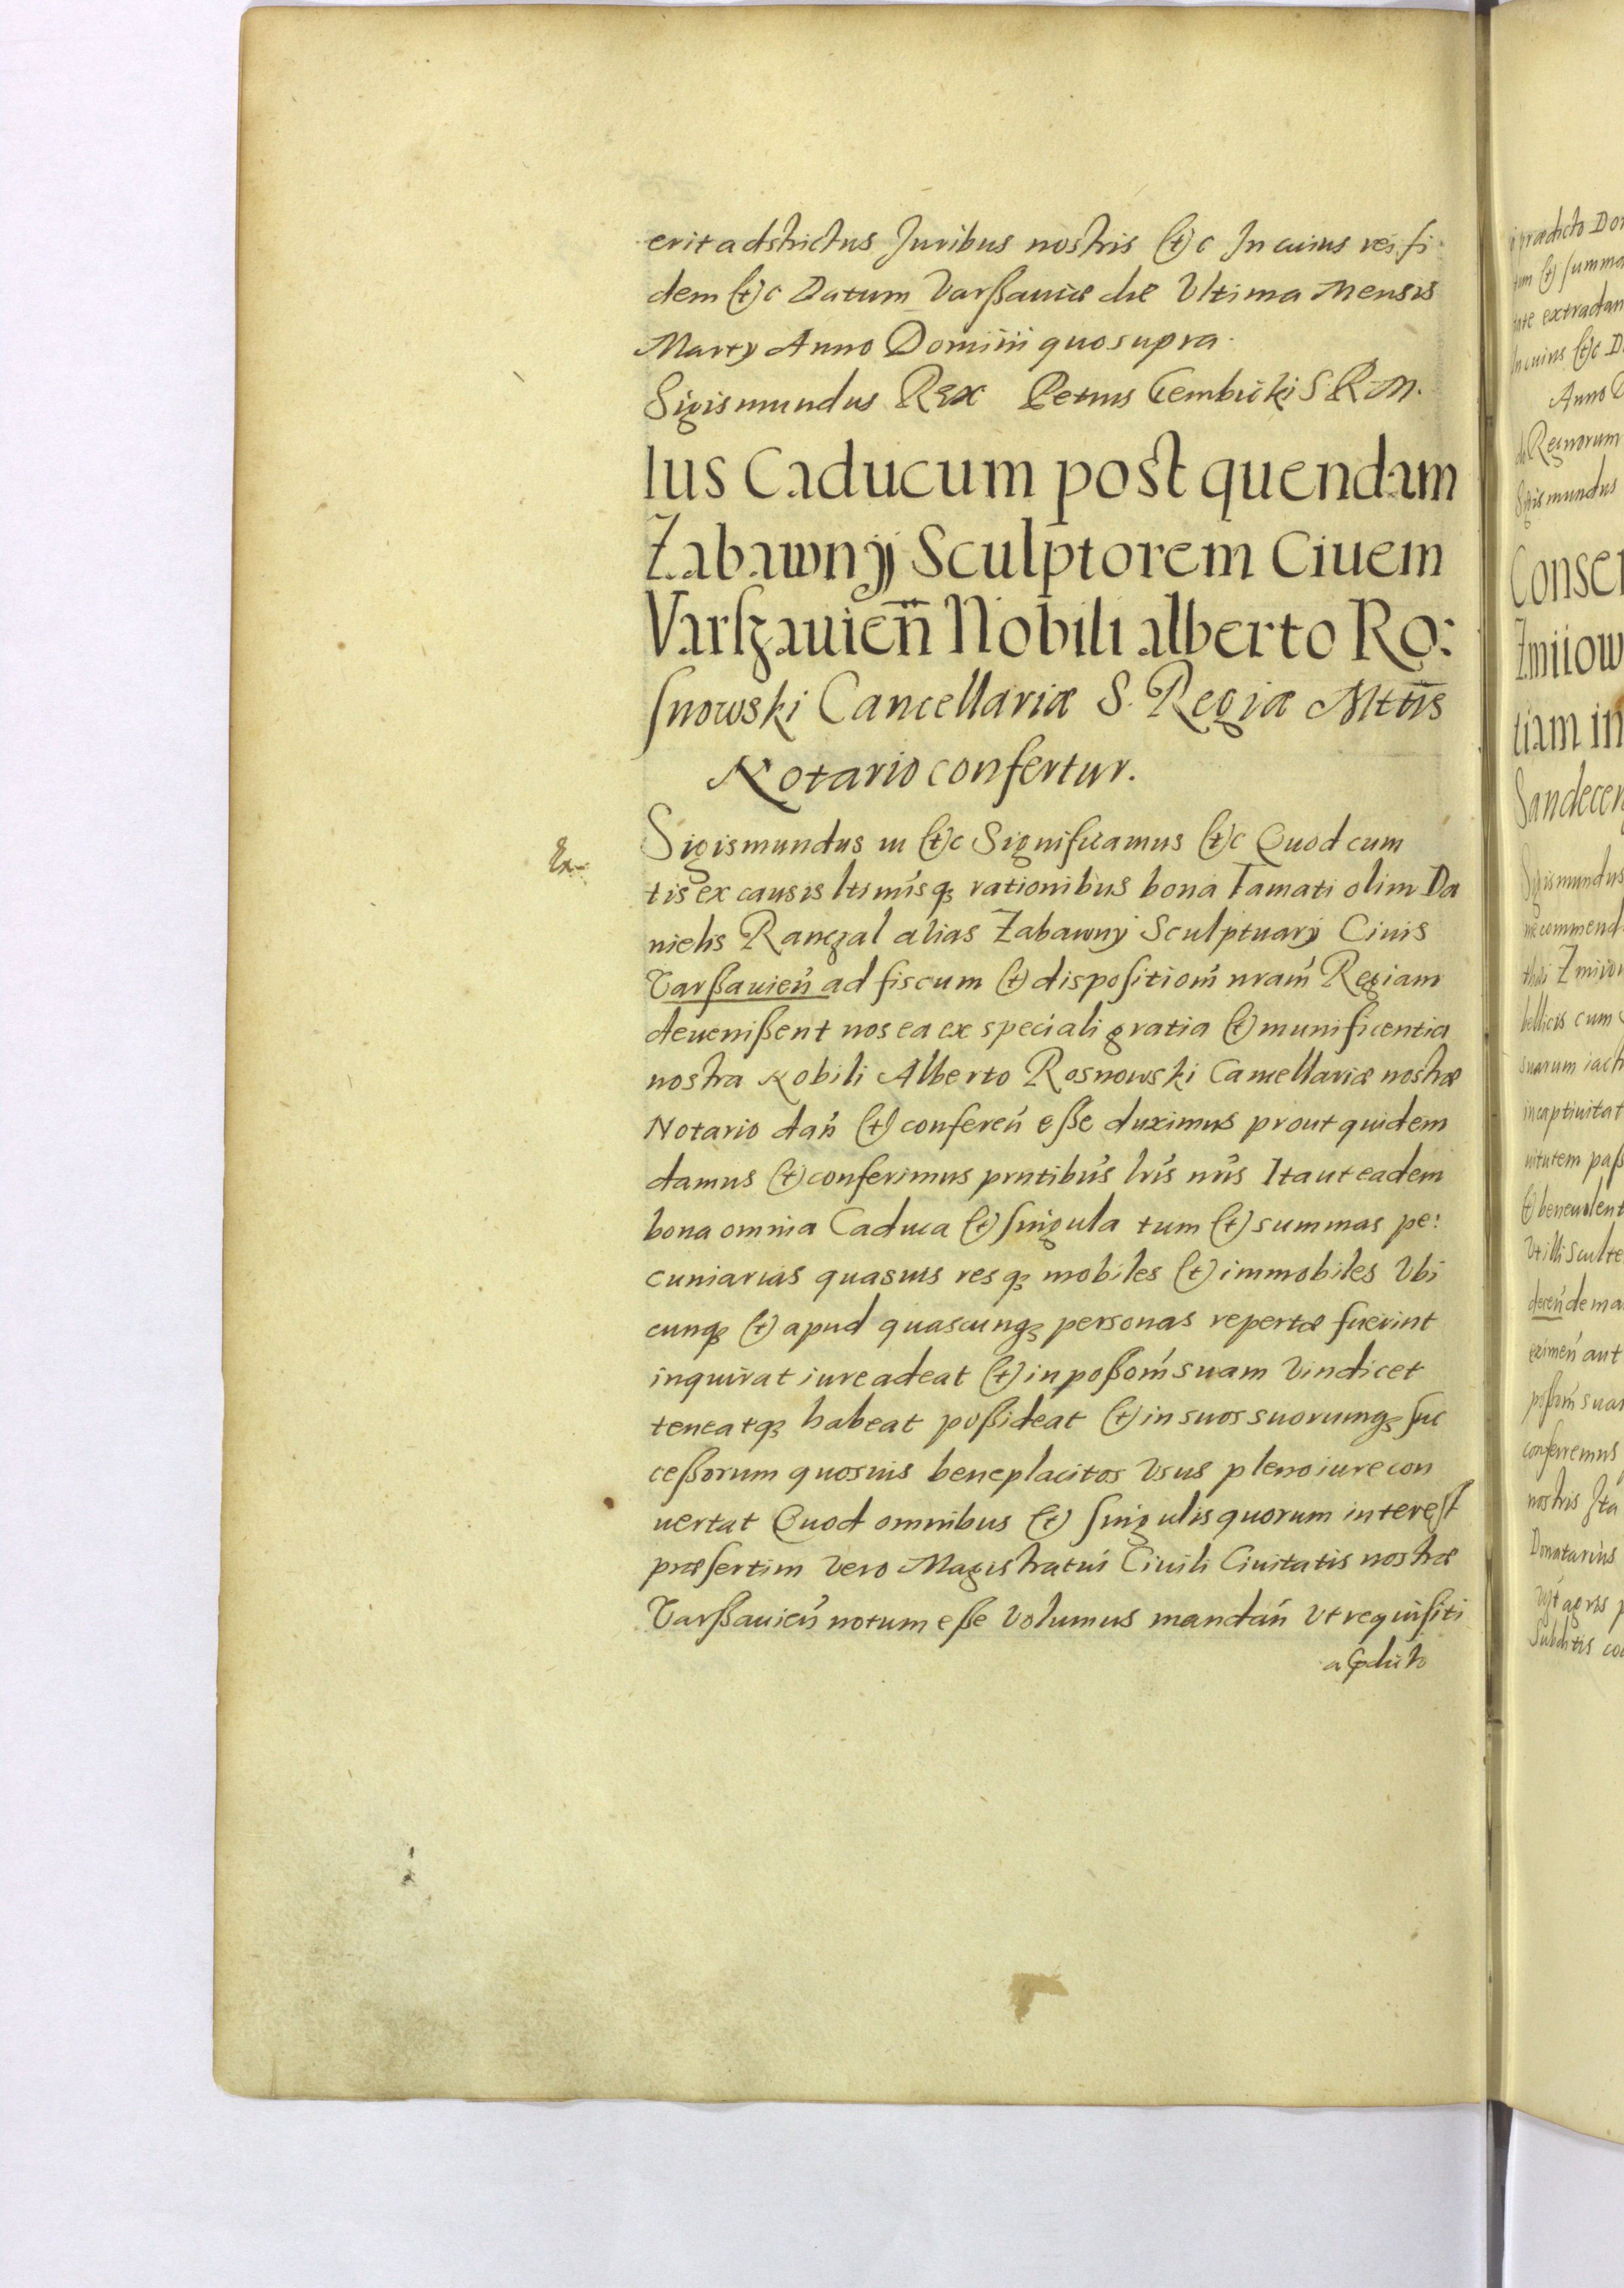 erit adstrictus Juribus nostris (et)c In cuius rei fi
dem (et)c Datum Varßauiæ die Vltima Mensis
Martÿ Anno Domini quo supra.
Sigismundus Rex Petrus Tembicki S. R. M.
Ius Caducum post quendam
Zabawnÿ Sculptorem Ciuem
Varſzauień Nobili alberto Ro:
ſnowski Cancellariæ S. Regiæ Mttis
Notario confertur.
Ex
Sigismundus III (et)c Significamus (et)c Quod cum
tis ex causis ltimisq₃ rationibus bona Famati olim Da
nielis Ranczal alias Zabawnÿ Sculptuarÿ Ciuis
Varßauień ad fiscum (et) dispoſitiom nram Regiam
deuenißent nos ea ex speciali gratia (et) munificentia
nostra Nobili Alberto Rosnowski Cancellariæ nostræ
Notario dań (et) confereń eße duximus prout quidem
damus (et) conferimus pntibus lris nris Ita ut eadem
bona omnia Caduca (et) ſingula tum (et) summas pe:
cuniarias quasuis resq₃ mobiles (et) immobiles Vbi
cunq₃ (et) apud quascunq₃ personas repertæ fuerint
inquirat iure adeat (et) in poßom suam Vindicet
teneatq₃ habeat poßideat (et) in suos suorumq₃ ſuc
ceßorum quosuis beneplacitos Vsus pleno iure con
uertat Quod omnibus (et) ſingulis quorum intereſt
præſertim Vero Magistratui Ciuili Ciuitatis nostræ
Varßauień notum eße Volumus mandań Vt requiſiti
a
i prædicto Do
summa
extradan
In cuius (et)c D
Anno D
Regnorum
Sigismundus
Conser
Zmiiow
tiam in
Sandecen
Sigismundus
commend
Zmiiow
bellicis cum
suarum iact
in captiuitat
uitutem paß
(et) benevolent
Vt illi Sculte
dereń de ma
eximeń aut
poßom suam
conferremus
nostris Ita
Donatarius
agris p
Subditis co